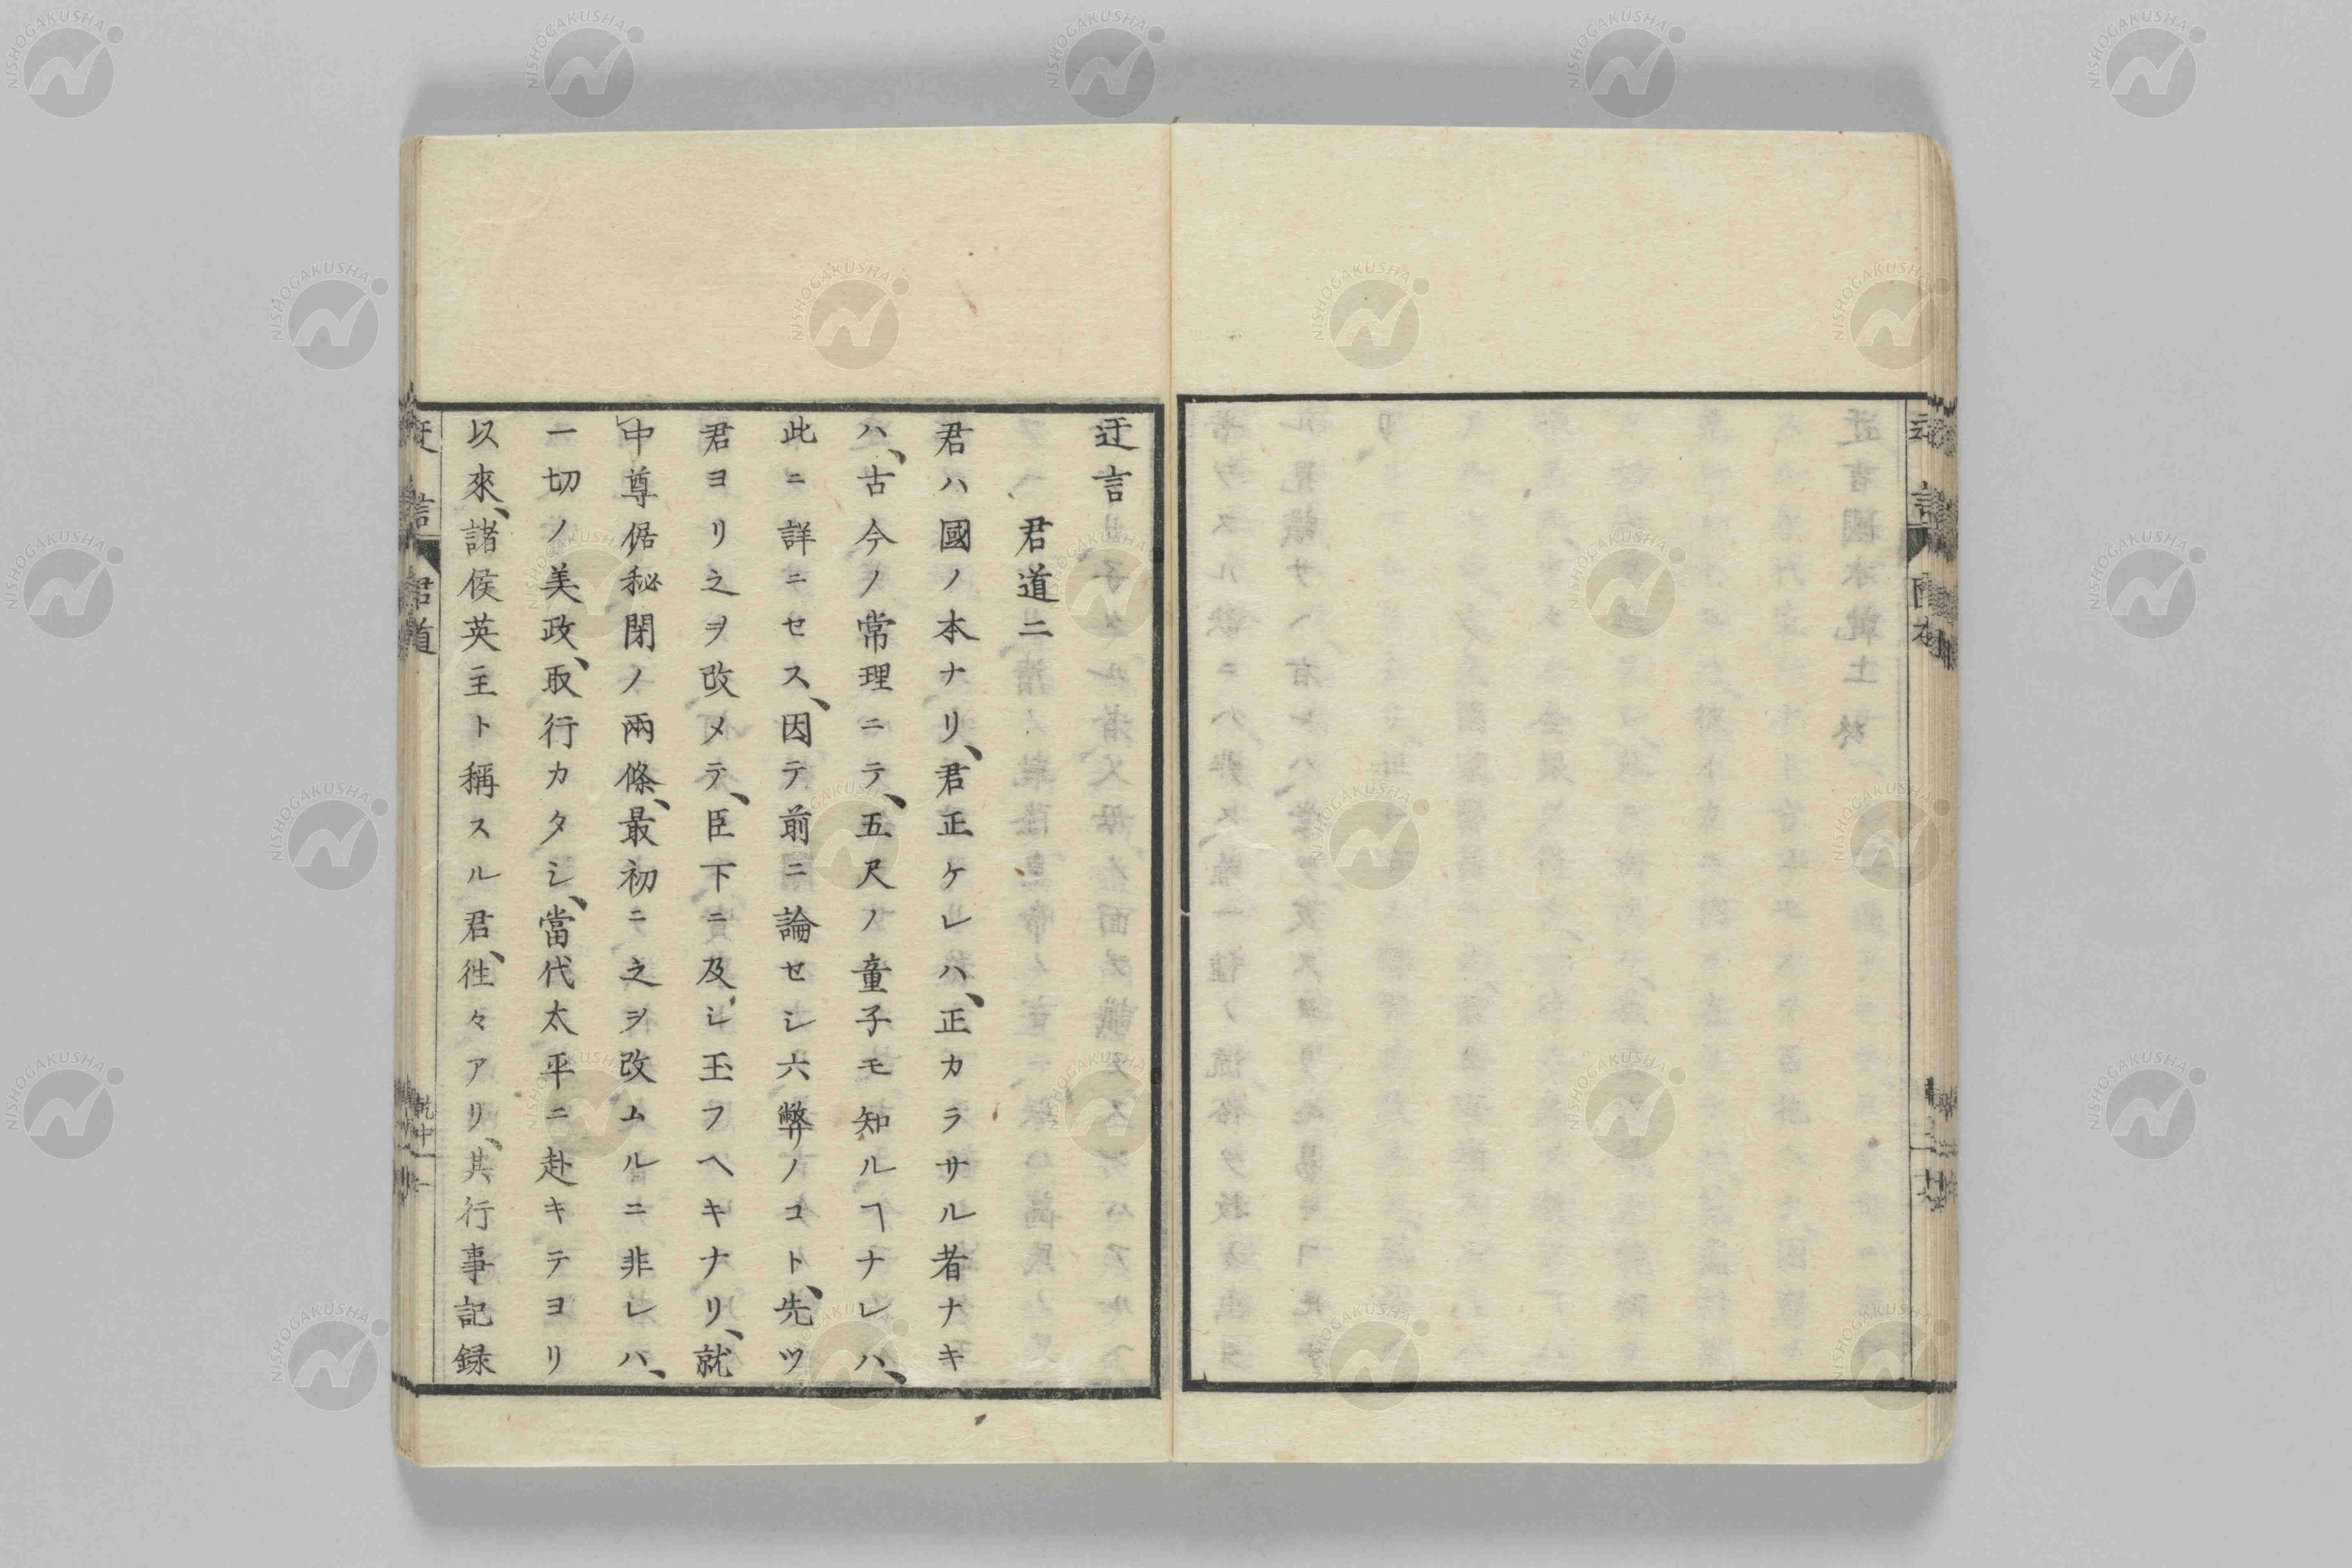 迂言
君道二
君ハ國ノ本ナリ、君正ケレハ、正カラサル者ナキ
ハ、古今ノ常理ニテ、五尺ノ童子モ知ルヿナレハ、
此ニ詳ニセス、因テ前ニ論セシ六弊ノコト、先ツ
君ヨリ之ヲ改メテ、臣下ニ及シ玉フヘキナリ、就
中尊倨秘閉ノ兩條、最初ニ之ヲ改ムルニ非レハ、
一切ノ美政、取行カタシ、當代太平ニ赴キテヨリ
以來、諸侯英主ト稱スル君、徃々アリ、其行事記録
NISHOGAKUSHA